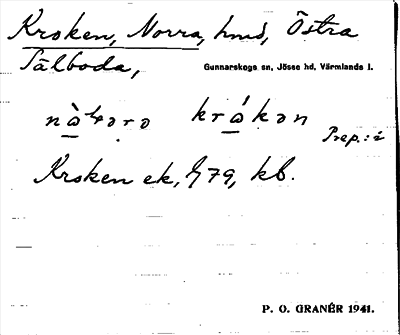 Kroken, Norra, hmd, Östra
Tälboda,
Gunnarskogs sn, Jösse hd, Värmlands l.
krákən
Prep.: i
Kroken ek, 1/79, kb.
P. O. GRANÉR 1941.